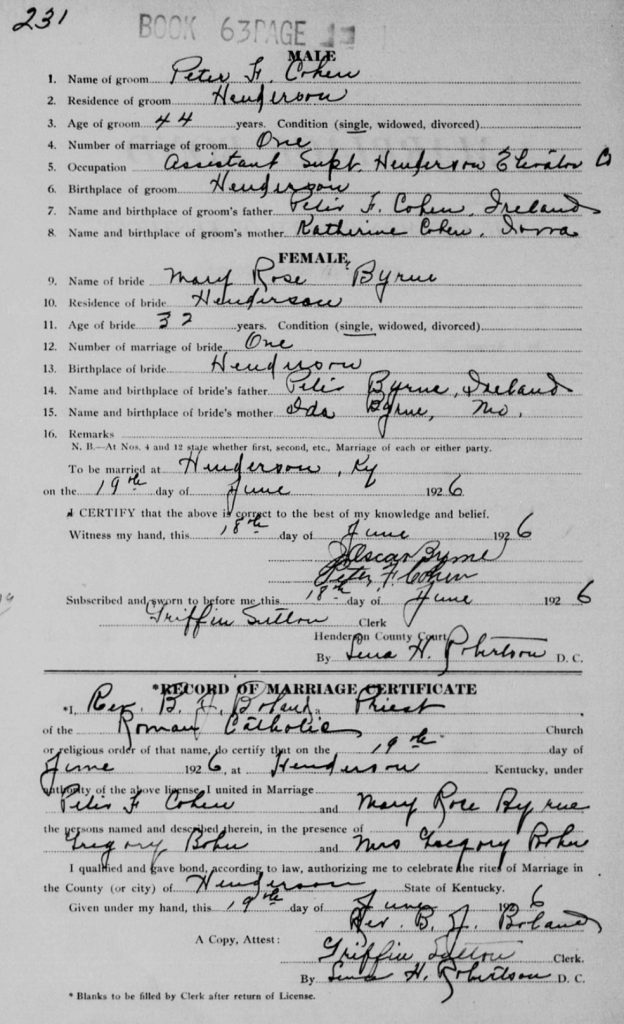 231
BOOK 63 PAGE
MALE
1. Name of groom Peter F. Cohen
2. Residence of groom Henderson
3. Age of groom 44 years. Condition (single, widowed, divorced)
4. Number of marriage of groom One
5. Occupation Assistant Supt. Henderson Elevator Co
6. Birthplace of groom Henderson
7. Name and birthplace of groom's father Peter F. Cohen, Ireland
8. Name and birthplace of groom's mother Katherine Cohen, Iowa
FEMALE
9. Name of bride Mary Rose Byrne
10. Residence of bride Henderson
11. Age of bride 32 years. Condition (single, widowed, divorced)
12. Number of marriage of bride One
13. Birthplace of bride Henderson
14. Name and birthplace of bride's father Peter Byrne, Ireland
15. Name and birthplace of bride's mother Ida Byrne, Mo.
16. Remarks
N. B.—At Nos. 4 and 12 state whether first, second, etc., Marriage of each or either party.
To be married at Henderson, Ky
on the 19th day of June 1926
I CERTIFY that the above is correct to the best of my knowledge and belief.
Witness my hand, this 18th day of June 1926
J Oscar Byrne
Peter F. Cohen
Subscribed and sworn to before me this 18th day of June 1926
Griffin Sutton Clerk
Henderson County Court
By Lena H. Robertson D. C.
*RECORD OF MARRIAGE CERTIFICATE
*I, Rev. B. J. Boland, a Priest
of the Roman Catholic Church
or religious order of that name, do certify that on the 19th day of
June 1926, at Henderson Kentucky, under
authority of the above license, I united in Marriage
Peter F Cohen and Mary Rose Byrne
the persons named and described therein, in the presence of
Gregory Bohn and Mrs Gregory Bohn
I qualified and gave bond, according to law, authorizing me to celebrate the rites of Marriage in
the County (or city) of Henderson State of Kentucky.
Given under my hand, this 19th day of June 1926
Rev. B. J. Boland
A Copy, Attest: Griffin Sutton Clerk.
By Lena H. Robertson D. C.
* Blanks to be filled by Clerk after return of License.